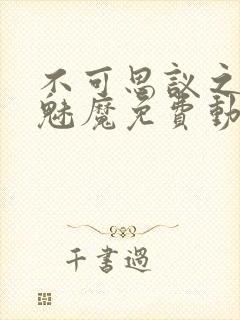 不可思議之
魅魔免費動
千書過